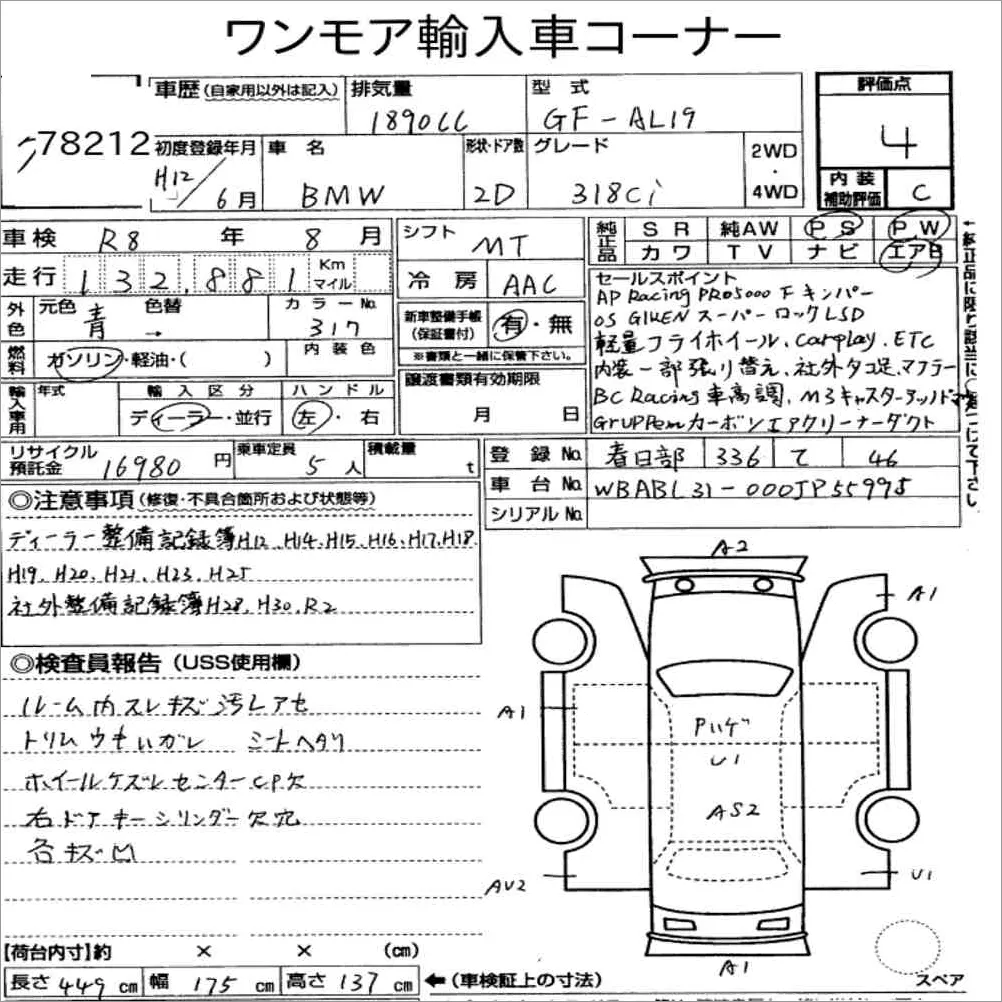 ワンモア輸入車コーナー
78212
車歴(自家用以外は記入)
排気量
1890cc
型 式
GF-AL19
評価点
4
内装補助評価
C
初度登録年月
H12/6月
車 名
BMW
形状・ドア数
2D
グレード
318Ci
2WD・4WD
車検 R8 年 8 月
シフト
MT
純正品
SR 純AW PS PW
カワ TV ナビ エアB
走行 132,881 Km マイル
冷 房
AAC
セールスポイント
AP Racing PRO5000 F キャリパー
OS GIKEN スーパーロックLSD
軽量フライホイール、Carplay、ETC
内装一部張り替え、社外タコ足、マフラー
BC Racing車高調、M3キャスターアッパーマ
GruppeMカーボンエアクリーナーダクト
外色
元色 色替
青 →
カラーNo.
317
新車整備手帳
(保証書付)
有・無
※書類と一緒に保管下さい。
燃料
ガソリン・軽油・( )
内装色
輸入車用
年式
輸入区分
ディーラー・並行
ハンドル
左・右
譲渡書類有効期限
月 日
リサイクル預託金
16980 円
乗車定員
5 人
積載量
t
登録 No.
春日部 336 て 46
車台 No.
WBABL31-000JP55995
シリアル No.
◎注意事項(修復・不具合箇所および状態等)
ディーラー整備記録簿H12、H14、H15、H16、H17、H18、
H19、H20、H21、H23、H25
社外整備記録簿H28、H30、R2
◎検査員報告(USS使用欄)
ルーム内スレキズ汚レアセ
トリムウキいガレ シートヘタリ
ホイールケズレセンターCP欠
右ドアキーシリンダー欠穴
各キズ凹
A2
A1
A1
Pハゲ
U1
AS2
AU2
U1
A1
スペア
【荷台内寸】約 × × (cm)
長さ 449 cm 幅 175 cm 高さ 137 cm ←(車検証上の寸法)